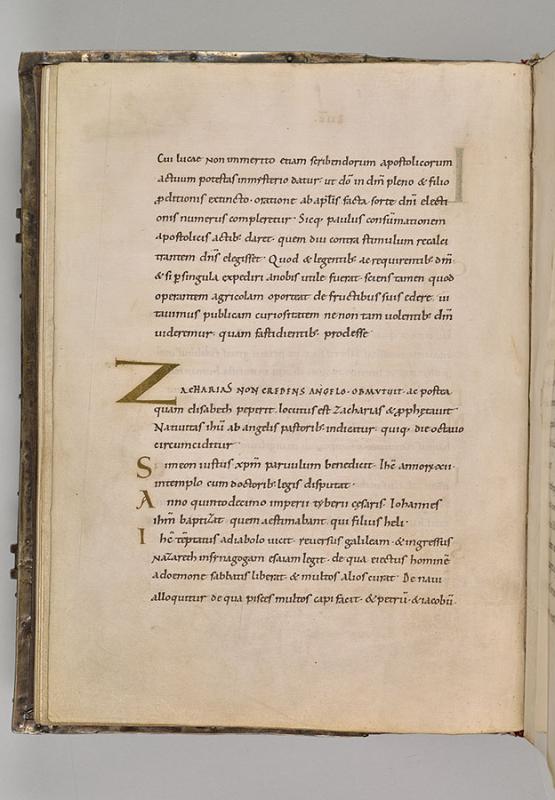 Cui lucae non inmerito etiam scribendorum apostolicorum
actuum potestas inmysterio datur · ut dō in dm̄ pleno & filio
ꝓditionis extincto · oratione ab apłis facta sorte dn̄i electi
onis numerus compleretur · Sicq; paulus consūmationem
apostolicis actib; daret · quem diu contra stimulum recalci
trantem dn̄s elegisset · Quod & legentib; ac requirentib; dm̄
& si ꝑ singula expediri a nobis utile fuerat · sciens tamen quod
operantem agricolam oporteat de fructibus suis edere · ui
tauimus publicam curiositatem ne non tam uolentib; dm̄
uideremur · quam fastidientib; prodesse
ZACHARIAS NON CREDENS ANGELO · OBMUTUIT · ac postea
quam elisabeth peperit · locutus est Zacharias & ꝓphetauit
Natiuitas ihū ab angelis pastorib; indicitur · quiq; die octauo
circumciditur
Simeon iustus xp̄m paruulum benedicit · Ihc̄ annorū xii ·
intemplo cum doctorib; legis disputat ·
Anno quintodecimo imperii tyberii cesaris · Iohannes
ihm̄ baptizat quem aestimabant qui filius heli ·
Ihc̄ tēptatus a diabolo uicit · reuersus galileam · & ingressus
nazareth insynagogam esaiam legit · de qua eiectus hominē
a doemone sabbatis liberat · & multos alios curat · De naui
alloquitur de qua pisces multos capi facit · & petrū · & iacobū ·